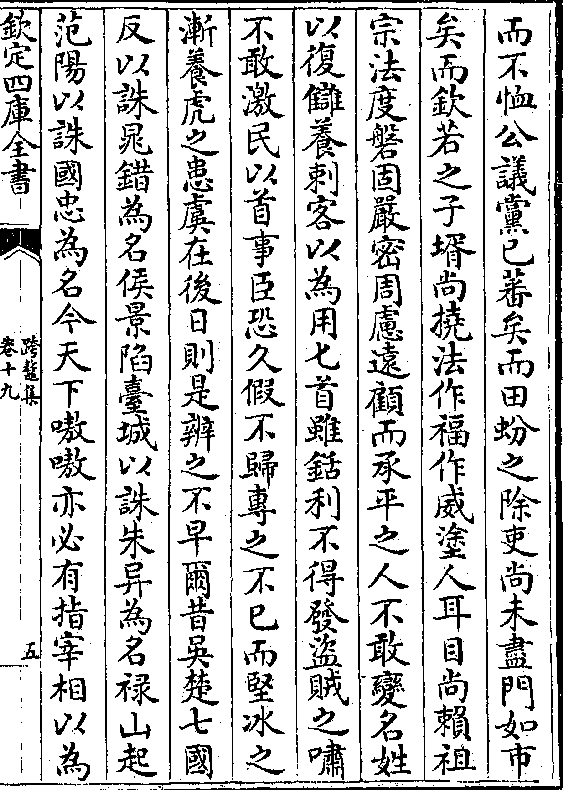 而不恤公議黨已蕃矣而田蚡之除吏尚未盡門如市
矣而欽若之子壻尚撓法作福作威塗人耳目尚賴祖
宗法度磐固嚴密周慮遠顧而承平之人不敢變名姓
以復讎養刺客以為用匕首雖銛利不得發盜賊之嘯
不敢激民以首事臣恐久假不歸專之不已而堅冰之
漸養虎之患虞在後日則是辨之不早爾昔吳楚七國
反以誅晁錯為名侯景陷臺城以誅朱异為名祿山起
范陽以誅國忠為名今天下嗷嗷亦必有指宰相以為
欽定四庫全書
跨鼇集
卷十九
五